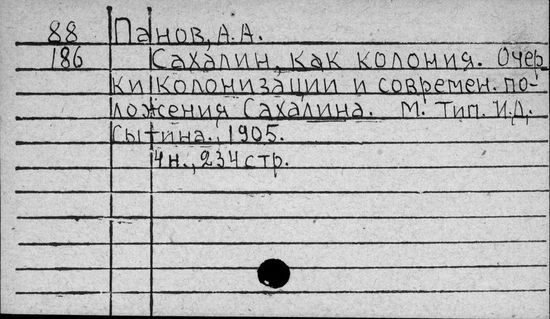 88 Панов, А.А.
186 Сахалин, как колония. Очер
ки колонизации и современ. по-
ложения Сахалина. М. Тип. И.Д.
Сытина., 1905.
4н., 234 стр.